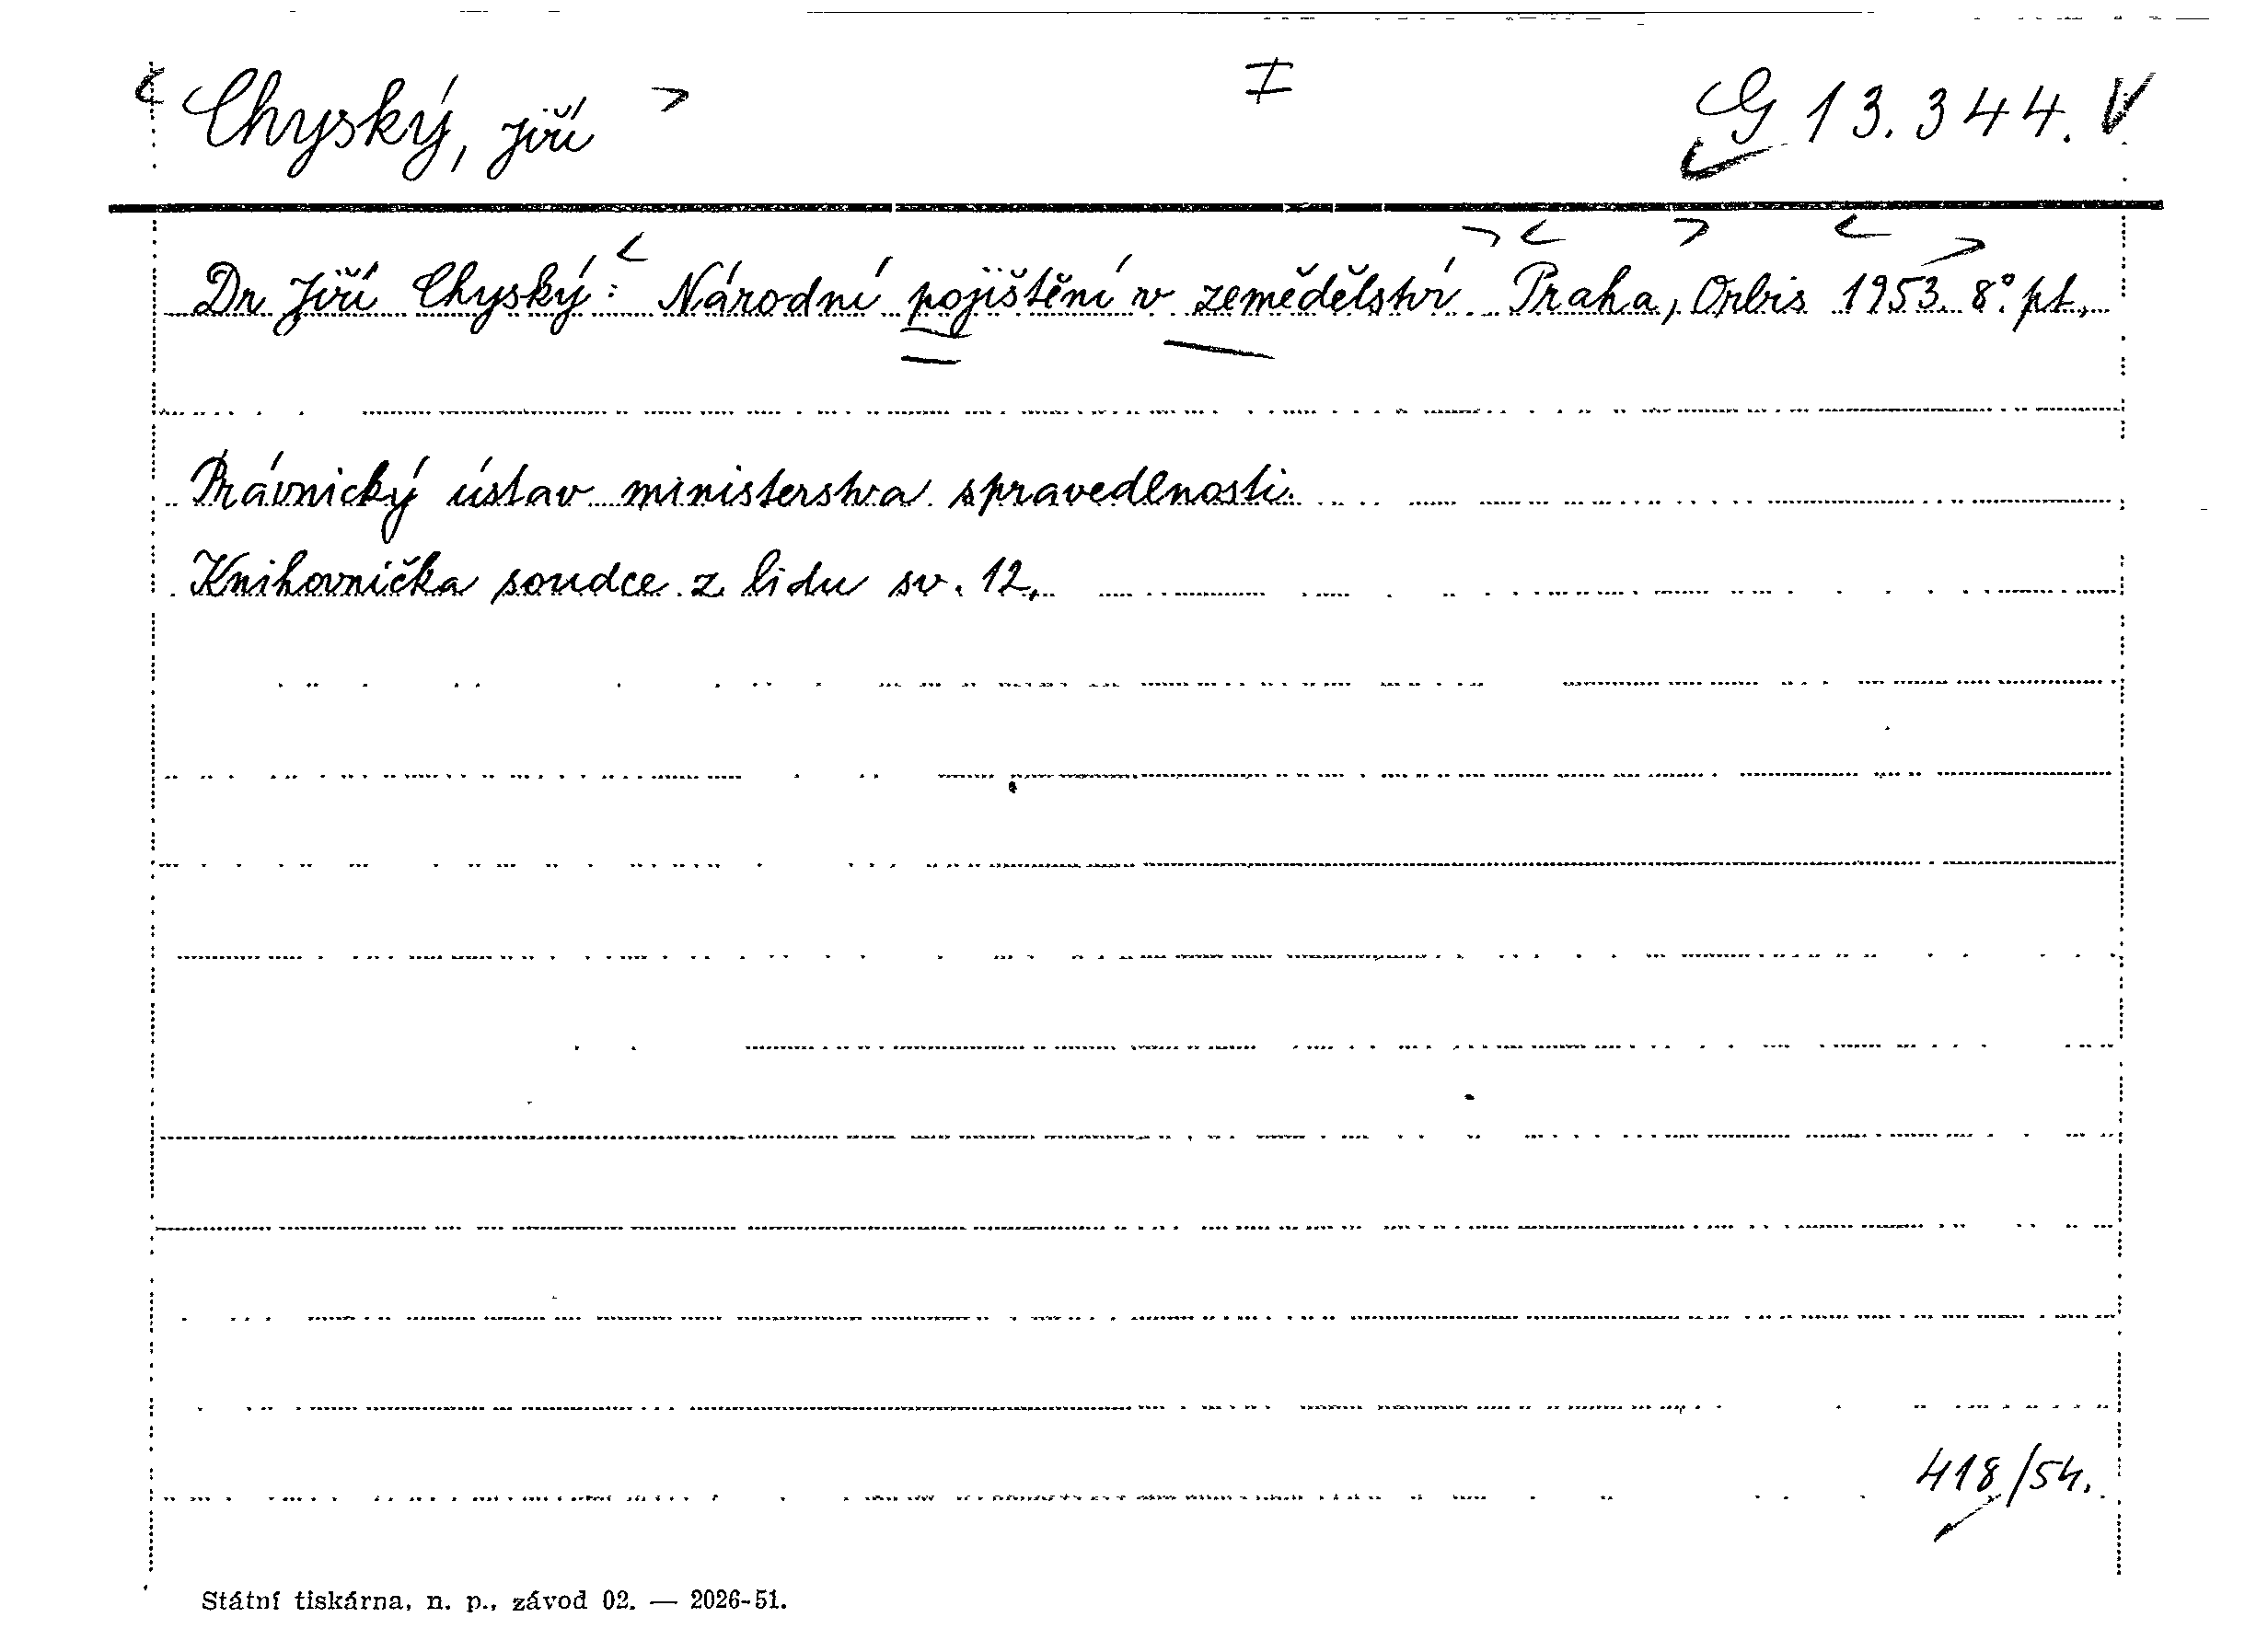 Chyský, Jiří I G 13.344. V
Dr Jiří Chyský: Národní pojištění v zemědělství. Praha, Orbis 1953. 8°. pt.,
Právnický ústav ministerstva spravedlnosti.
Knihovnička soudce z lidu sv. 12,
418/54.
Státní tiskárna, n. p., závod 02. — 2026-51.